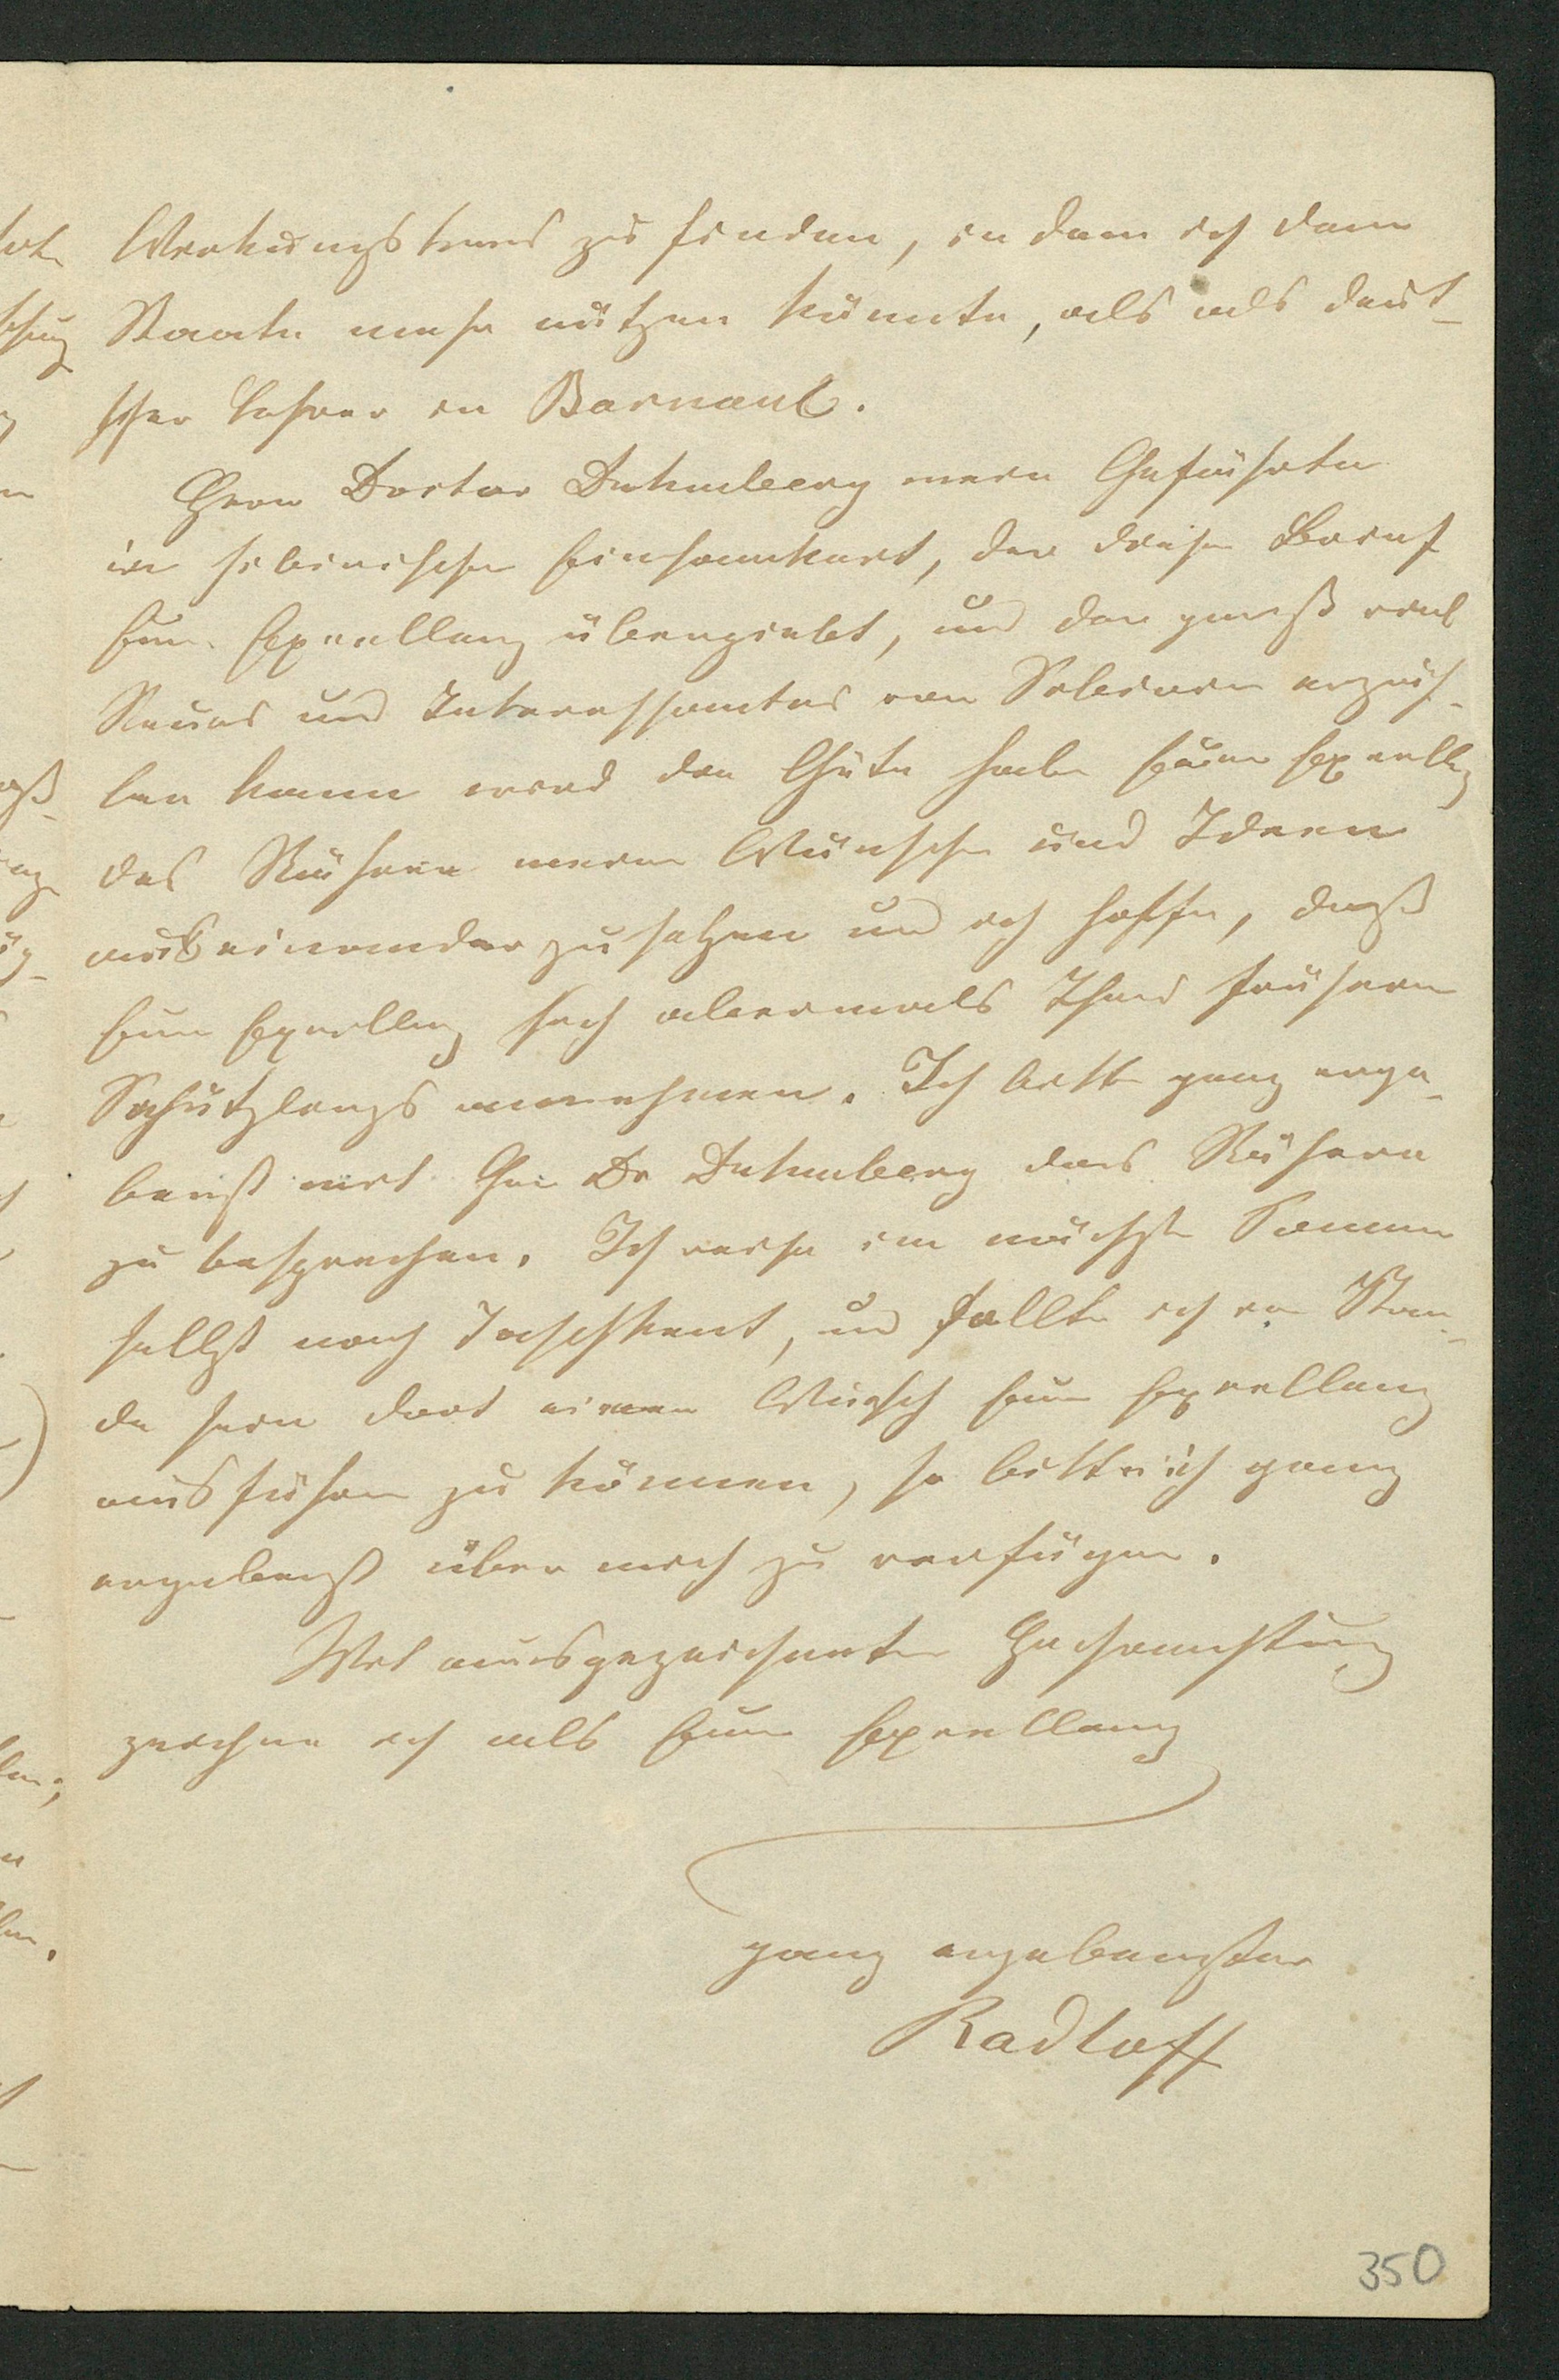 Wirkungskreis zu finden, in dem ich dem
Staate mehr nützen könnte, als als deut-
scher Lehrer in Barnaul.
Herr Doctor Duhmberg mein Gefährte
in sibirischer Einsamkeit, der diesen Brief
Eurer Excellenz übergiebt, und der gewiß viel
Neues und Interessantes von Sibirien erzäh-
len kann wird die Güte haben Eurer Excellenz
das Nähere meiner Wünsche und Ideen
auseinander zu setzen und ich hoffe, daß
Eure Excellenz sich abermals Ihres früheren
Schützlings annehmen. Ich bitte ganz erge-
benst mit Herr Dr Duhmberg das Nähere
zu besprechen. Ich reise im nächsten Sommer
selbst nach Taschkent, und sollte ich im Stan-
de sein dort einen Wunsch Eurer Excellenz
ausführen zu können, so bitte ich ganz
ergebenst über mich zu verfügen.
Mit ausgezeichneter Hochachtung
zeichne ich als Eurer Excellenz
ganz ergebenster
Radloff
350